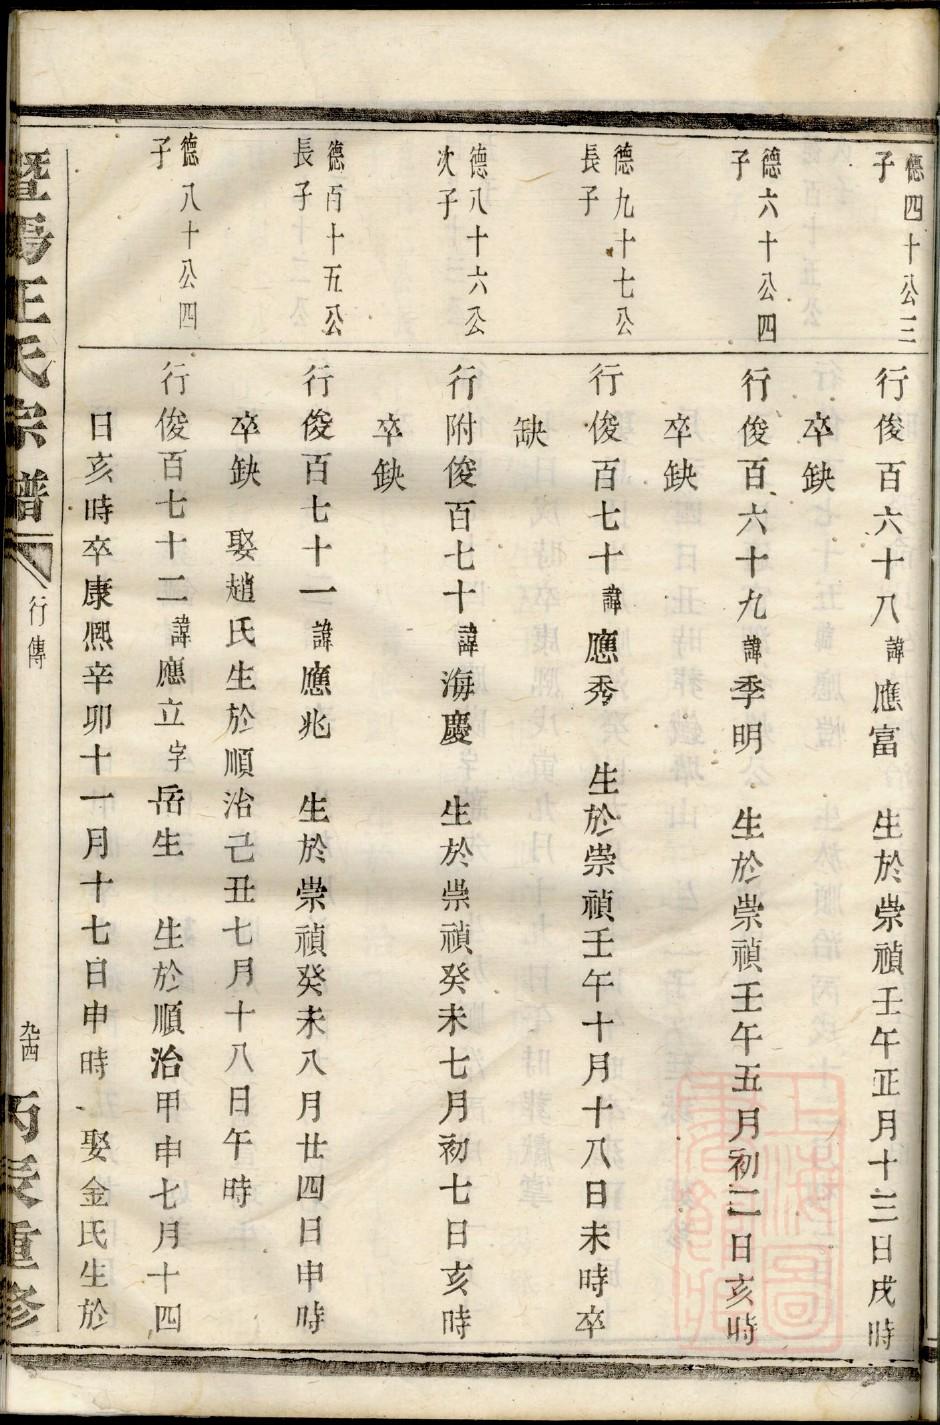 德四十公三
子
行俊百六十八諱應富　生於崇禎壬午正月十三日戌時
卒缺
德六十公四
子
行俊百六十九諱季明　生於崇禎壬午五月初二日亥時
卒缺
德九十七公
長子
行俊百七十諱應秀　生於崇禎壬午十月十八日未時卒
缺
德八十六公
次子
行附俊百七十諱海慶　生於崇禎癸未七月初七日亥時
卒缺
德百十五公
長子
行俊百七十一諱應兆　生於崇禎癸未八月廿四日申時
卒缺　娶趙氏生於順治己丑七月十八日午時
德八十公四
子
行俊百七十二諱應立字岳生　生於順治甲申七月十四
日亥時卒康熈辛卯十一月十七日申時　娶金氏生於
暨陽王氏宗譜
行傳
九四
丙辰重修